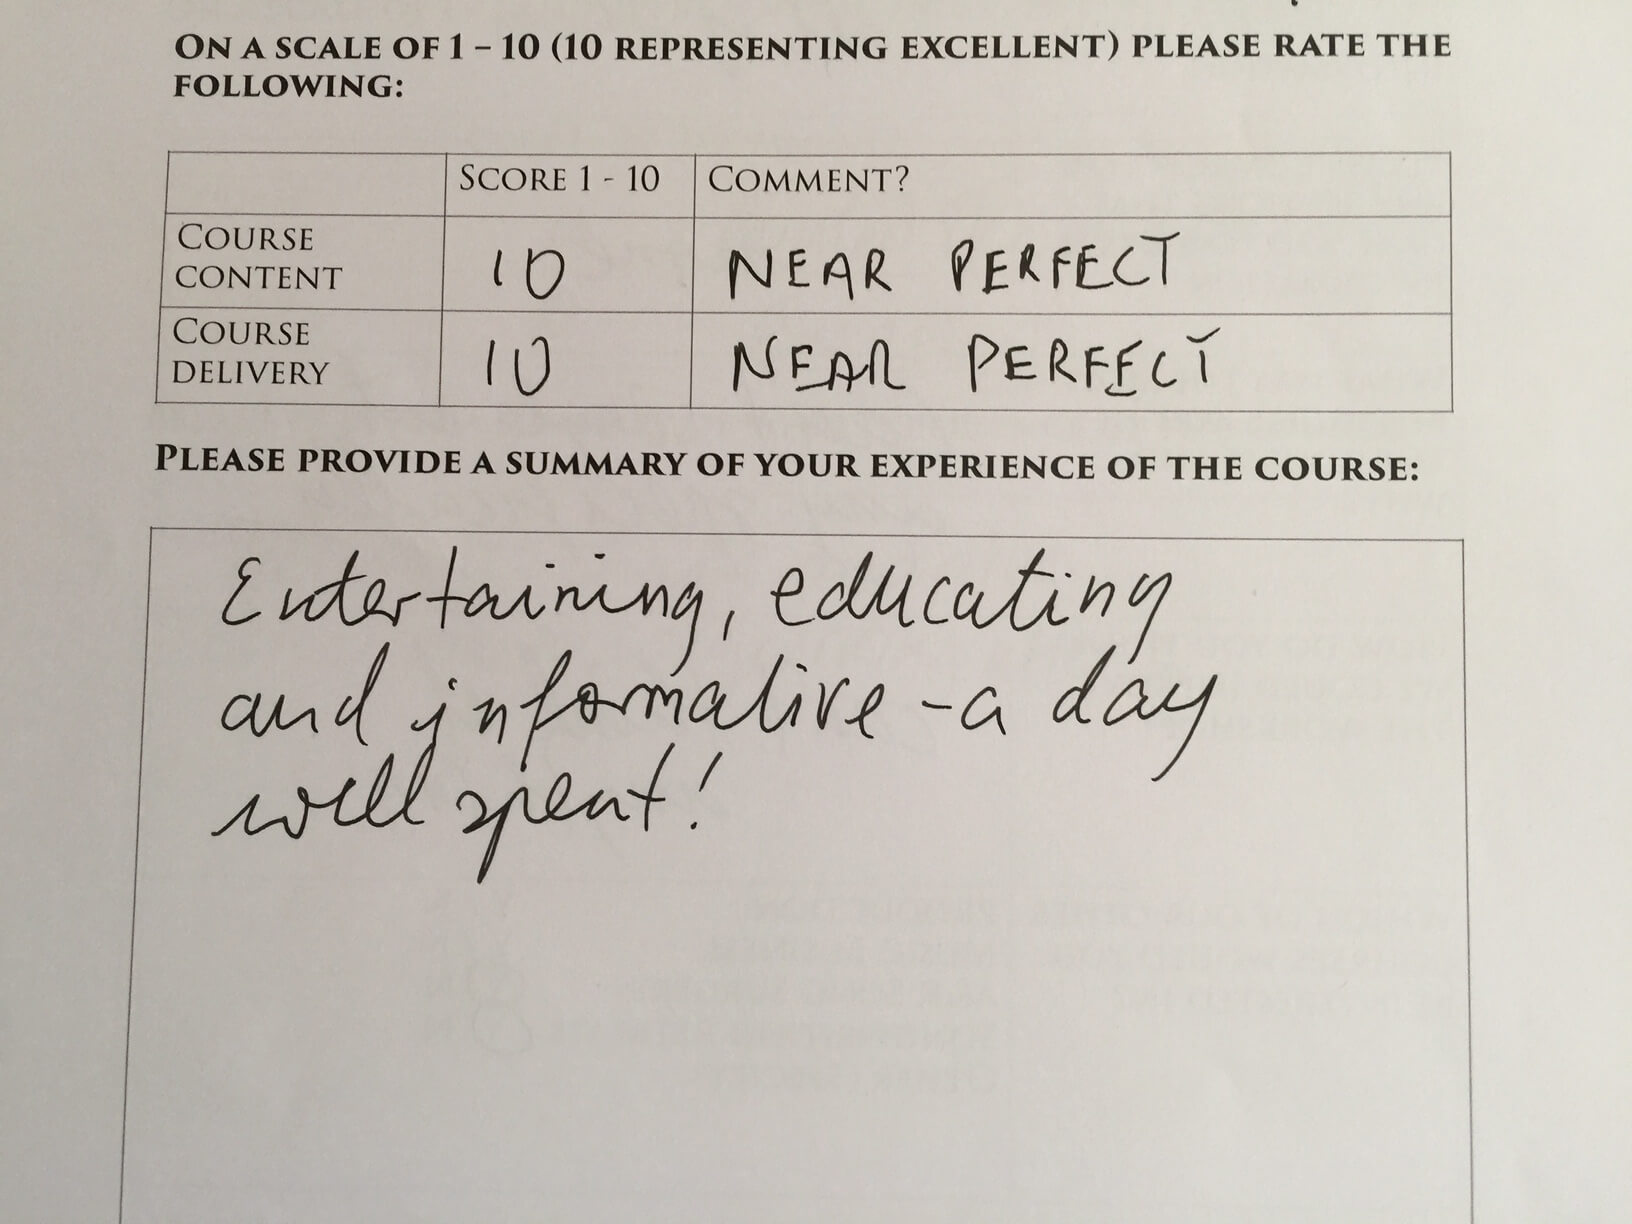 ON A SCALE OF 1 – 10 (10 REPRESENTING EXCELLENT) PLEASE RATE THE
FOLLOWING:
SCORE 1 - 10 COMMENT?
COURSE
CONTENT 10 NEAR PERFECT
COURSE
DELIVERY 10 NEAR PERFECT
PLEASE PROVIDE A SUMMARY OF YOUR EXPERIENCE OF THE COURSE:
Entertaining, educating
and informative - a day
well spent!